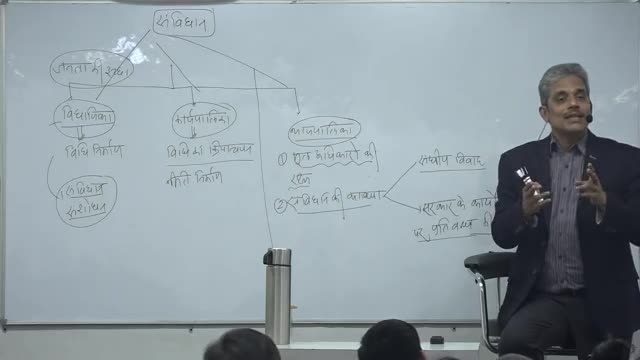 संविधान
जनता की सत्ता
विधायिका
विधि निर्माण
संविधान
संशोधन
कार्यपालिका
विधि का क्रियान्वयन
नीति निर्माण
न्यायपालिका
① मूल अधिकारों की
रक्षा
② संविधान की व्याख्या
संघीय विवाद
सरकार के कार्यो
पर प्रतिबन्ध